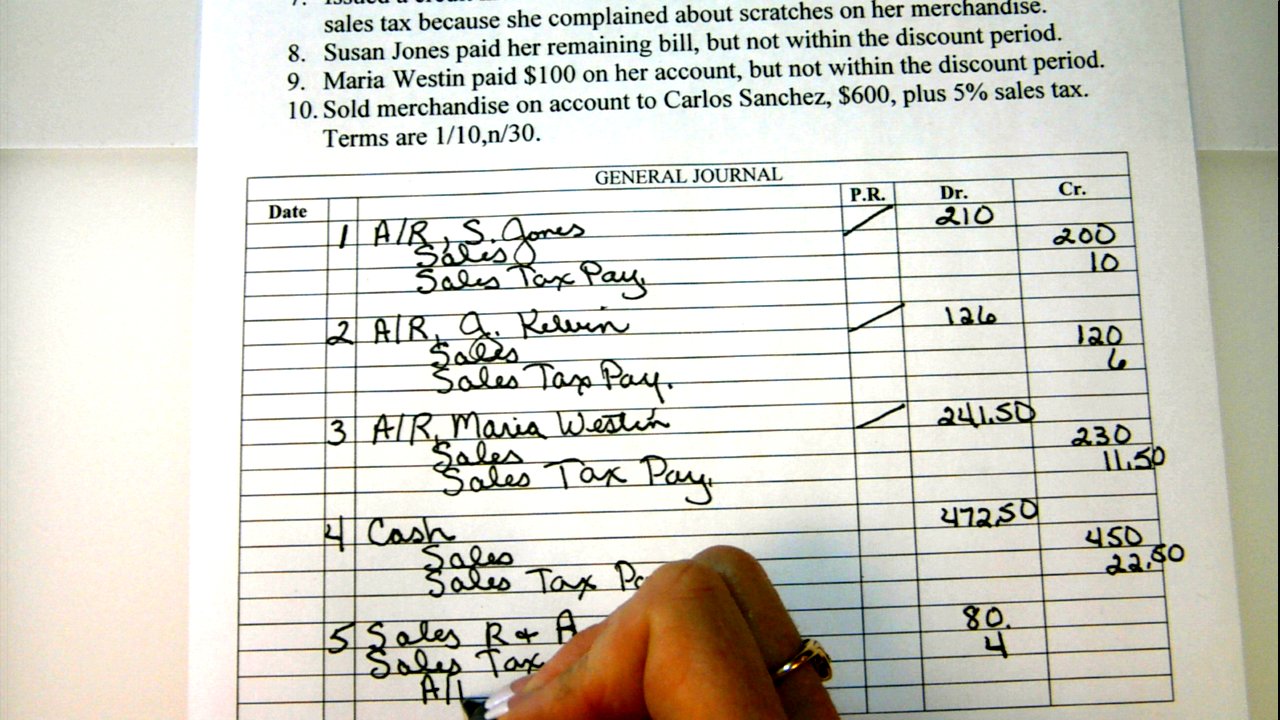 sales tax because she complained about scratches on her merchandise.
8. Susan Jones paid her remaining bill, but not within the discount period.
9. Maria Westin paid $100 on her account, but not within the discount period.
10. Sold merchandise on account to Carlos Sanchez, $600, plus 5% sales tax.
Terms are 1/10,n/30.
GENERAL JOURNAL
Date P.R. Dr. Cr.
1 A/R, S. Jones 210
Sales 200
Sales Tax Pay. 10
2 A/R, J. Kelvin 126
Sales 120
Sales Tax Pay. 6
3 A/R, Maria Westin 241.50
Sales 230
Sales Tax Pay. 11.50
4 Cash 472.50
Sales 450
Sales Tax Pa 22.50
5 Sales R + A 80.
Sales Tax 4
A/